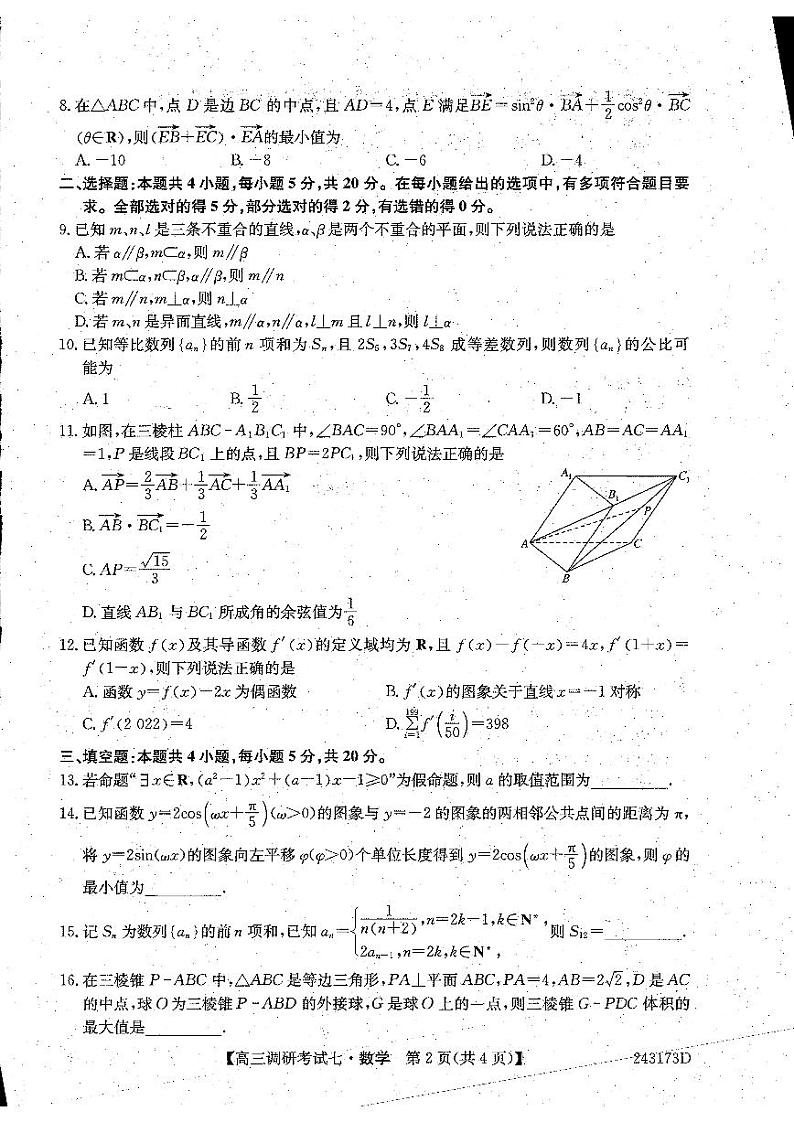 8.在△ABC中,点D是边BC的中点,且AD=4,点E满足$\overrightarrow{BE}=\sin^2\theta\cdot\overrightarrow{BA}+\frac{1}{2}\cos^2\theta\cdot\overrightarrow{BC}$
(θ∈R),则$(\overrightarrow{EB}+\overrightarrow{EC})\cdot\overrightarrow{EA}$的最小值为
A.-10 B.-8 C.-6 D.-4
二、选择题:本题共4小题,每小题5分,共20分。在每小题给出的选项中,有多项符合题目要
求。全部选对的得5分,部分选对的得2分,有选错的得0分。
9.已知m、n、l是三条不重合的直线,α、β是两个不重合的平面,则下列说法正确的是
A.若α∥β,m⊂α,则m∥β
B.若m⊂α,n⊂β,α∥β,则m∥n
C.若m∥n,m⊥α,则n⊥α
D.若m、n是异面直线,m∥α,n∥α,l⊥m且l⊥n,则l⊥α
10.已知等比数列{aₙ}的前n项和为Sₙ,且2S₆,3S₇,4S₈成等差数列,则数列{aₙ}的公比可
能为
A.1 B.$\frac{1}{2}$ C.$-\frac{1}{2}$ D.-1
11.如图,在三棱柱ABC-A₁B₁C₁中,∠BAC=90°,∠BAA₁=∠CAA₁=60°,AB=AC=AA₁
=1,P是线段BC₁上的点,且BP=2PC₁,则下列说法正确的是
A.$\overrightarrow{AP}=\frac{2}{3}\overrightarrow{AB}+\frac{1}{3}\overrightarrow{AC}+\frac{1}{3}\overrightarrow{AA_1}$
B.$\overrightarrow{AB}\cdot\overrightarrow{BC_1}=-\frac{1}{2}$
C.$AP=\frac{\sqrt{15}}{3}$
D.直线AB₁与BC₁所成角的余弦值为$\frac{1}{6}$
A₁
C₁
B₁
P
A
C
B
12.已知函数f(x)及其导函数f′(x)的定义域均为R,且f(x)-f(-x)=4x,f′(1+x)=
f′(1-x),则下列说法正确的是
A.函数y=f(x)-2x为偶函数 B.f′(x)的图象关于直线x=-1对称
C.f′(2 022)=4 D.$\sum_{i=1}^{199}f'\left(\frac{i}{50}\right)=398$
三、填空题:本题共4小题,每小题5分,共20分。
13.若命题“∃x∈R,(a²-1)x²+(a-1)x-1≥0”为假命题,则a的取值范围为________.
14.已知函数$y=2\cos\left(\omega x+\frac{\pi}{5}\right)$(ω>0)的图象与y=-2的图象的两相邻公共点间的距离为π,
将y=2sin(ωx)的图象向左平移φ(φ>0)个单位长度得到$y=2\cos\left(\omega x+\frac{\pi}{5}\right)$的图象,则φ的
最小值为________.
15.记Sₙ为数列{aₙ}的前n项和,已知$a_n=\begin{cases}\frac{1}{n(n+2)},n=2k-1,k\in\mathbf{N}^*,\\2a_{n-1},n=2k,k\in\mathbf{N}^*,\end{cases}$则S₁₂=________.
16.在三棱锥P-ABC中,△ABC是等边三角形,PA⊥平面ABC,PA=4,AB=2√2,D是AC
的中点,球O为三棱锥P-ABD的外接球,G是球O上的一点,则三棱锥G-PDC体积的
最大值是________.
【高三调研考试七·数学 第2页(共4页)】 243173D